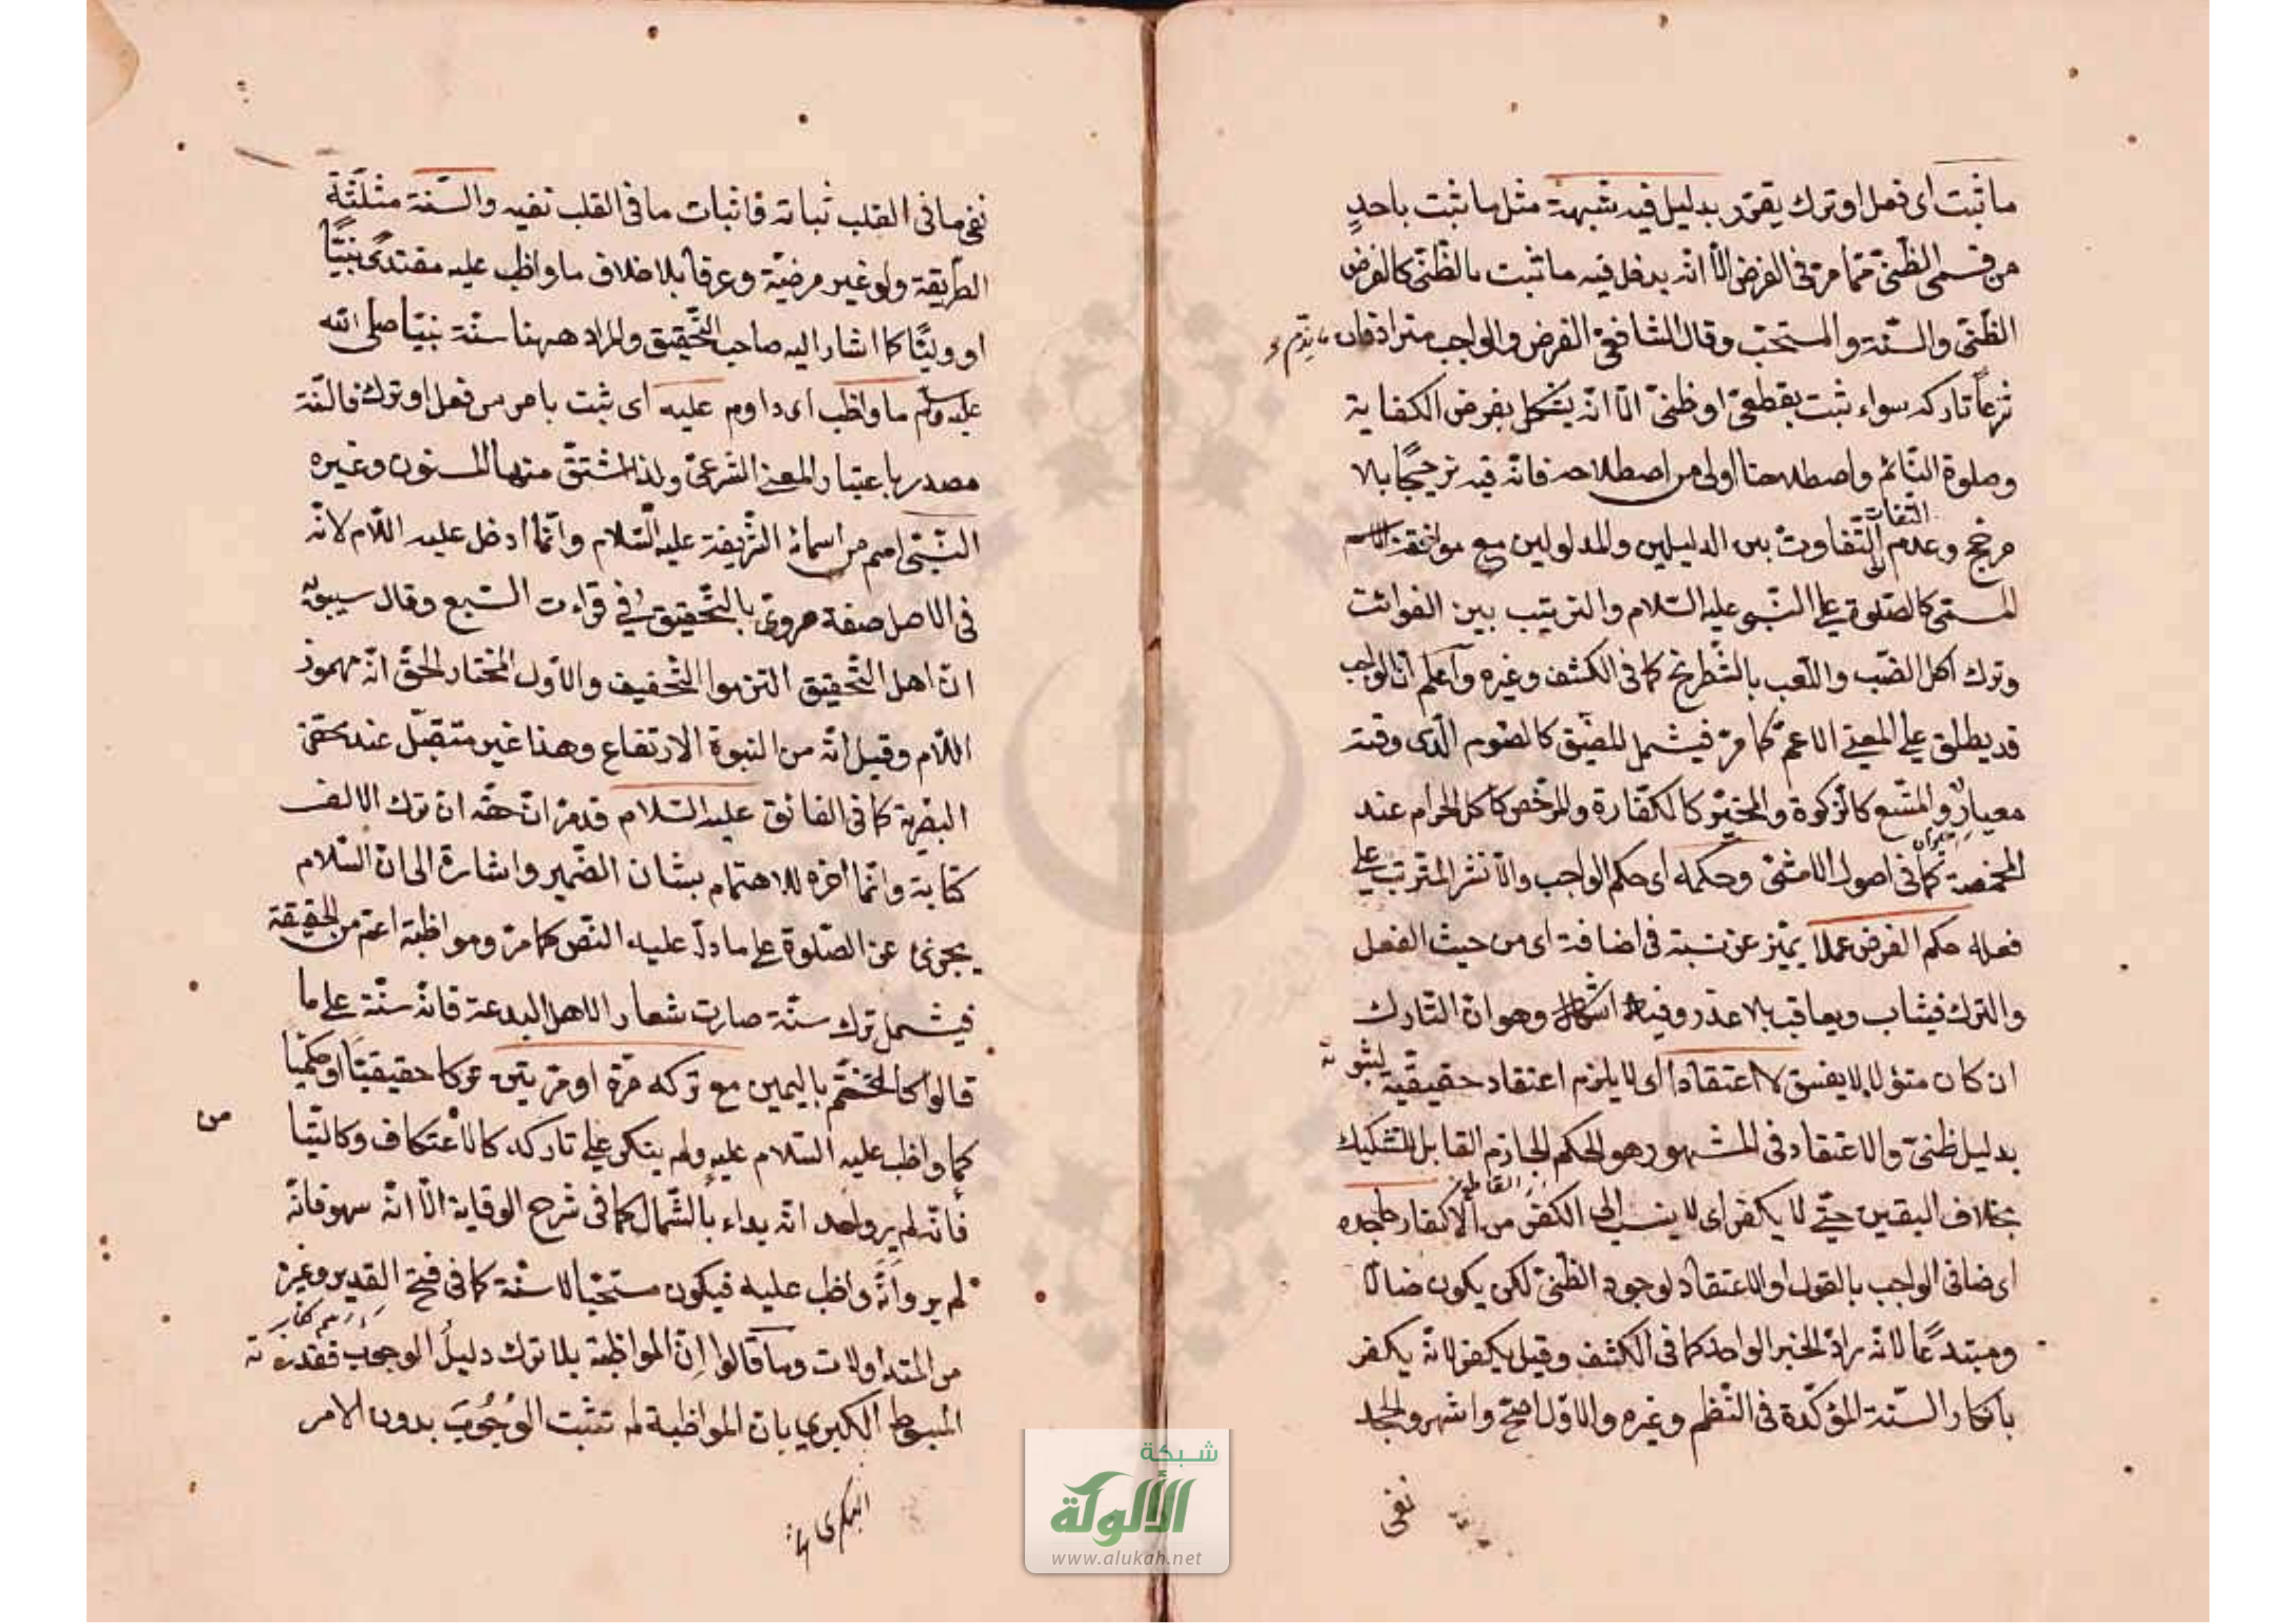 ما ثبت اى فعل او ترك يقرر بدليل فيه شبهة مثل ما ثبت باحدٍ
من قسمى الظنّى ممّا مرّ فى الفرض الّا انّه يدخل فيه ما ثبت بالظنّى كالفرض
الظنّى والسّنة والمستحب وقال الشافعىّ الفرض والواجب مترادفان ما يذم
شرعاً تاركه سواء ثبت بقطعىّ او ظنىّ الّا انّه يشكل بفرض الكفاية
وصلوة النّائم واصطلاحنا اولى من اصطلاحه فانّه فيه ترجيحًا بلا
مرجّح وعدم التفات الى التّفاوت بين الدليلين والمدلولين مع موافقة
المسمّى كالصّلوة على النّبى عليه السّلام والترتيب بين الفوائت
وترك اكل الضّب واللّعب بالشّطرنج كما فى الكشف وغيره واعلم انّ الواجب
قد يطلق على المعنى الاعمّ كما مرّ فيشمل المضيّق كالصّوم الّذى وقته
معيارٌ والمتّسع كالزّكوة والمخيّر كالكفّارة والمرخّص كاكل الحرام عند
المخمصة كما فى اصول اللامشى وحكمه اى حكم الواجب والاثر المترتب على
فعله حكم الفرض عملا يميّز عن نسبة فى اضافة اى من حيث الفعل
والترك فيثاب ويعاقب بلا عذر وفيه اشكال وهو ان التّارك
ان كان متؤلا لا يفسق لا اعتقادا اى لا يلزم اعتقاد حقيقيّة لثبوته
بدليل ظنىّ والاعتقاد فى المشهور هو الحكم الجازم القابل للتشكيك
بخلاف اليقين حتّى لا يكفر اى لا ينسب الى الكفر من الاكفار جاحده
اى ضافى الواجب بالقول او الاعتقاد لوجود الظنىّ لكن يكون ضالّا
ومبتدعًا لانّه رادّ الخبر الواحد كما فى الكشف وقيل يكفر لانّه يكفر
بانكار السّنة المؤكّدة فى النّظم وغيره والاوّل اصحّ واشهر والجحد
نفى
نفى ما فى القلب ثباته واثبات ما فى القلب نفيه والسّنة مثلّثة
الطّريقة ولو غير مرضيّة وعرفا بلا خلاف ما واظب عليه مقتدًى نبيًّا
او وليًّا كما اشار اليه صاحب التّحقيق والمراد ههنا سنّة نبيّنا صلى الله
عليه وسلم ما واظب اى داوم عليه اى ثبت با مر من فعل او ترك فالسّنة
مصدر باعتبار المعنى الشّرعىّ ولذا اشتقّ منها المسنون وغيره
النّبىّ اسم من اسمائه الشّريفة عليه السّلام وانّما ادخل عليه اللّام لانّه
فى الاصل صفة مروىّ بالتّحقيق فى قراءت السّبع وقال سيبويه
انّ اهل التّحقيق التزموا التّخفيف والاوّل المختار الحقّ انّه مهموز
اللّام وقيل انّه من النبوة الارتفاع وهذا غير متقبّل عند محقّقى
البصرية كما فى الفائق عليه السّلام قد مرّ انّ حقّه ان ترك الالف
كتابة وانّما اخّره للاهتمام بشان الضّمير واشارة الى ان السّلام
يجزى عن الصّلوة على ما دلّ عليه النّص كما مرّ ومواظبة اعمّ من الحقيقة
فيشمل ترك سنّة صارت شعار الاهل البدعة فانّه سنّة على ما
قالوا كالتختّم باليمين مع تركه مرّة او مرّتين تركا حقيقيّا او حكميّا
كما واظب عليه السّلام عليه ولم ينكر على تاركه كالاعتكاف وكالتيا
من
فانّه لم يرو احد انّه بداء بالشّمال كما فى شرح الوقاية الّا انّه سهو فانّه
لم يرو انّه واظب عليه فيكون مستحبّا لا سنّة كما فى فتح القدير وغيره
من المتداولات وما قالوا انّ المواظبة بلا ترك دليل الوجوب فقد
المبسوط الكبرى بان المواظبة لم تثبت الوجوب بدون الامر
شبكة
الألوكة
www.alukah.net